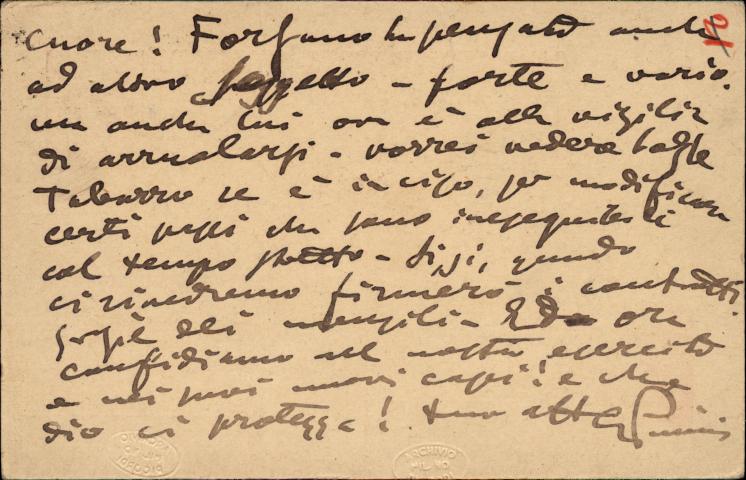 cuore! Forzano ha pensato anche
ad altro soggetto - forte e vario.
ma anche lui ora è alla vigilia
di arruolarsi - vorrei vedere bozze
Tabarro se è inciso, per modificare
certi passi che sono ineseguibili
col tempo stretto - Sì, sì, quando
ci rivedremo firmerò i contratti
dei mensili - Ed ora
confidiamo nel nostro esercito
e nei suoi nuovi capi! e che
dio ci protegga! tuo aff GPuccini
ARCHIVIO